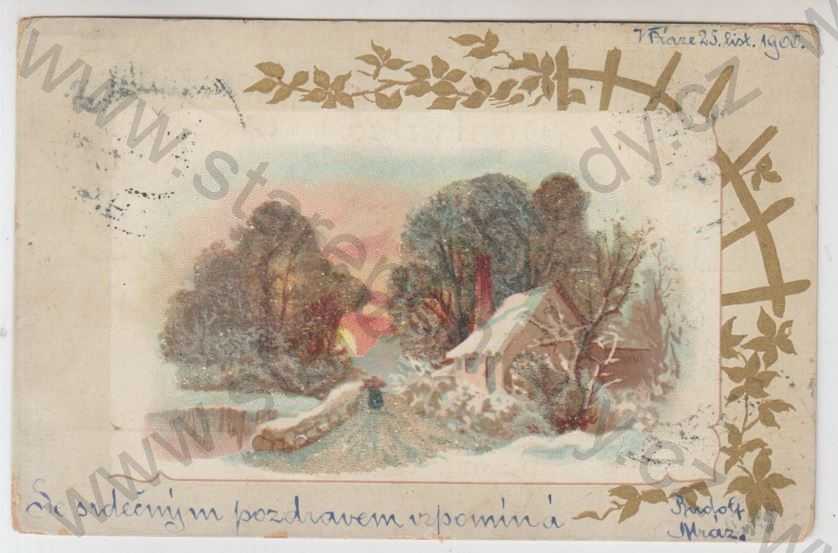 V Praze 25. list. 1900.
Se srdečným pozdravem vzpomíná
Rudolf
Mráz.
www.starepohlednice.cz